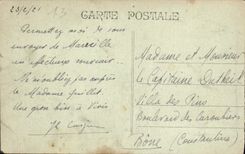 23/2/21
CARTE POSTALE
Permettez moi de vous
envoyer de Marseille
un affectueux souvenir
N'oubliez pas auprès
de Madame
Une gros bise à
Madame et Monsieur
le Capitaine Dutheil
Villa des Pins
Boulevard des Caroubiers
Bône (Constantine)